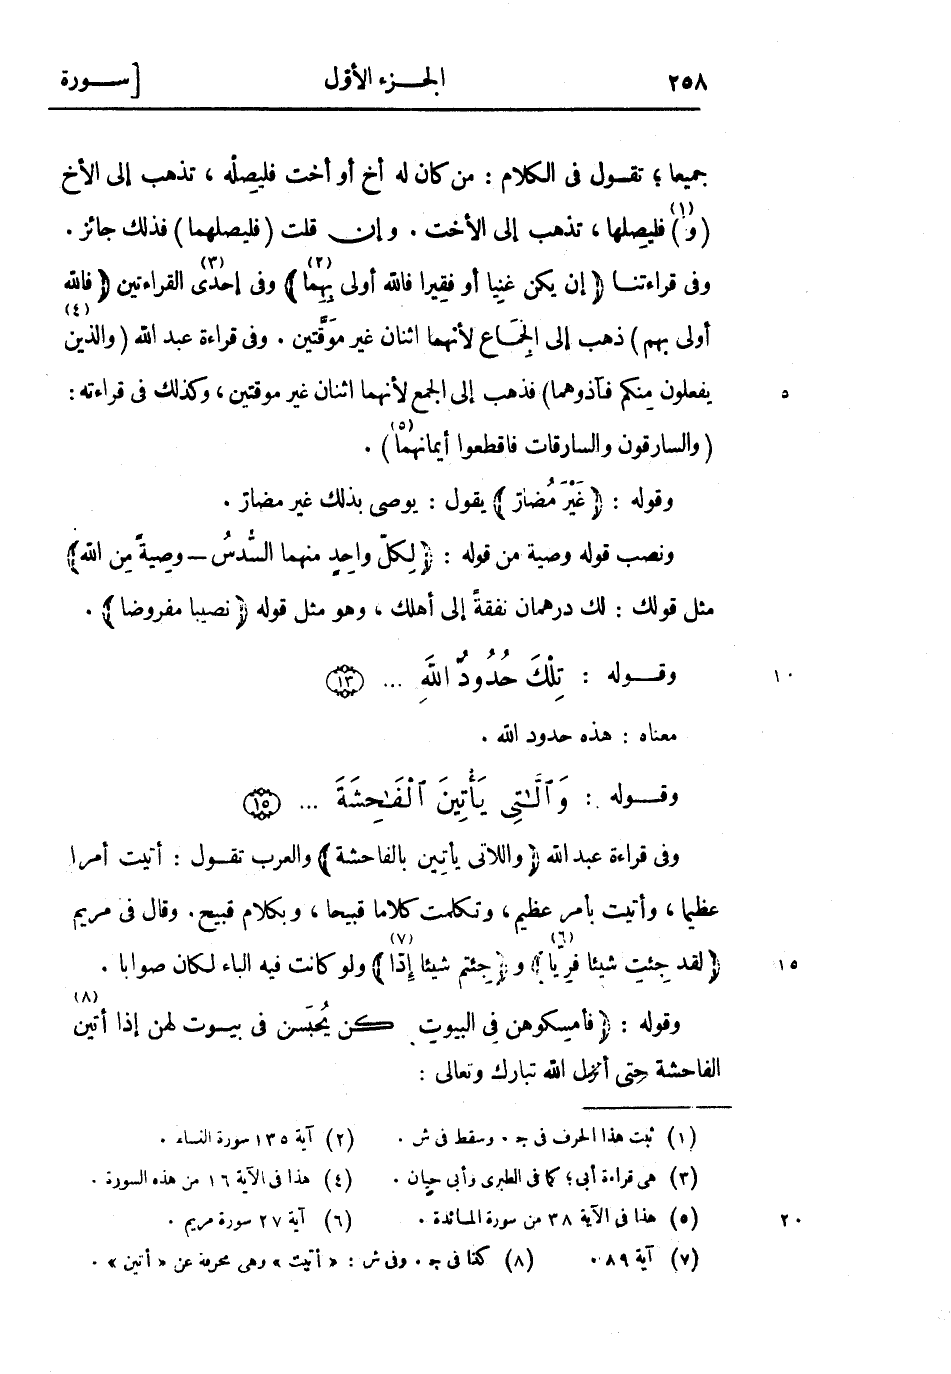 ٢٥٨ الجزء الأول [سورة
جميعا ؛ تقول فى الكلام : من كان له أخ أو أخت فليصلْه ، تذهب إلى الأخ
(و)(١) فليصلها ، تذهب إلى الأخت . وإن قلت (فليصلهما) فذلك جائز .
وفى قراءتنا ﴿إن يكن غنِيا أو فقِيرا فالله أولى بِهِما﴾(٢) وفى إحدى(٣) القراءتين ﴿فالله
أولى بهم) ذهب إلى الجِمَاع لأنهما اثنان غير موقَّتين . وفى قراءة عبد الله (والذين(٤)
يفعلون مِنكم فـآذوهما) فذهب إلى الجمع لأنهما اثنان غير موقتين ، وكذلك فى قراءته : ٥
(والسارقون والسارقات فاقطعوا أيمانهما)(٥) .
وقوله : ﴿غَيْرَ مُضارّ﴾ يقول : يوصى بذلك غير مضارّ .
ونصب قوله وصية من قوله : ﴿لِكلّ واحِدٍ منهما السُّدسُ – وصِيةً مِن الله﴾
مثل قولك : لك درهمان نفقةً إلى أهلك ، وهو مثل قوله ﴿نصيبا مفروضا﴾ .
وقوله : تِلْكَ حُدُودُ اللَّهِ ... (١٣) ١٠
معناه : هذه حدود الله .
وقوله : وَٱلَّٰتِى يَأْتِينَ ٱلْفَٰحِشَةَ ... (١٥)
وفى قراءة عبد الله ﴿واللاتى يأتِين بالفاحشة﴾ والعرب تقول : أتيت أمرا
عظيما ، وأتيت بأمر عظيم ، وتكلمت كلاما قبيحا ، وبكلام قبيح . وقال فى مريم
﴿لقد جِئتِ شيئا فرِيا﴾(٦) و﴿جِئتم شيئا إِدّا﴾(٧) ولو كانت فيه الباء لكان صوابا . ١٥
وقوله : ﴿فأمسِكوهن فِى البيوتِ كن يُحبَسن فى بيوت لهن إذا أتين(٨)
الفاحشة حتى أنزل الله تبارك وتعالى :
(١) ثبت هذا الحرف فى جـ . وسقط فى ش . (٢) آية ١٣٥ سورة النساء .
(٣) هى قراءة أبى ؛ كما فى الطبرى وأبى حيان . (٤) هذا فى الآية ١٦ من هذه السورة .
(٥) هذا فى الآية ٣٨ من سورة المائدة . (٦) آية ٢٧ سورة مريم . ٢٠
(٧) آية ٨٩ . (٨) كذا فى جـ . وفى ش : « أتيت » وهى محرفة عن « أتين » .